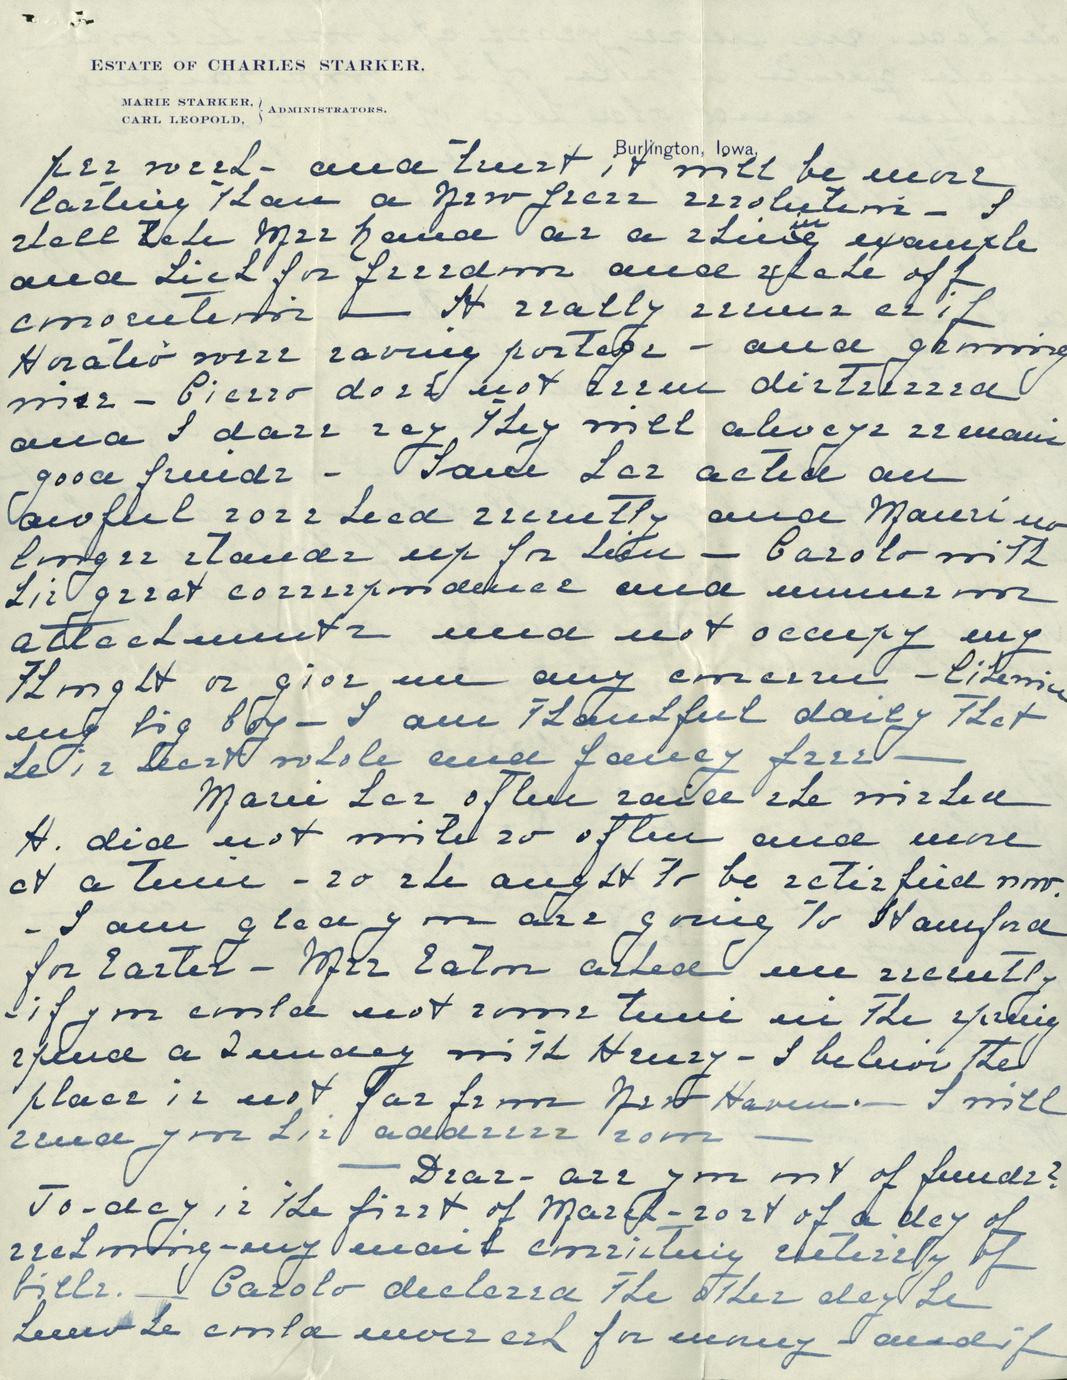 ESTATE OF CHARLES STARKER.
MARIE STARKER,
CARL LEOPOLD,
ADMINISTRATORS.
Burlington, Iowa,
per week - and trust it will be more
lasting than a New Year resolution - I
shall take Mrs Rand as a shining example
and kick for freedom and shake off
convention — It really seems as if
Horatio were saving postage - and growing
wise - Pierro does not seem distressed
and I dare say they will always remain
good friends - Sam has acted an
awful sore head recently and Marie no
longer stands up for him - Carolo with
his great correspondence and numerous
attachments need not occupy my
thought or give me any concern - likewise
my big boy - I am thankful daily that
he is heart whole and fancy free —
Marie has often said she wished
H. did not write so often and more
at a time - so she aught to be satisfied now.
- I am glad you are going to Stamford
for Easter - Mrs Eaton asked me recently
- if you could not some time in the spring
spend a Sunday with Henry - I believe the
place is not far from New Haven. — I will
send you his address soon —
— Dear - are you out of funds?
To-day is the first of March - sort of a day of
reckoning - my mail consisting entirely of
bills. — Carolo declared the other day he
knew he could never ask for money - and if